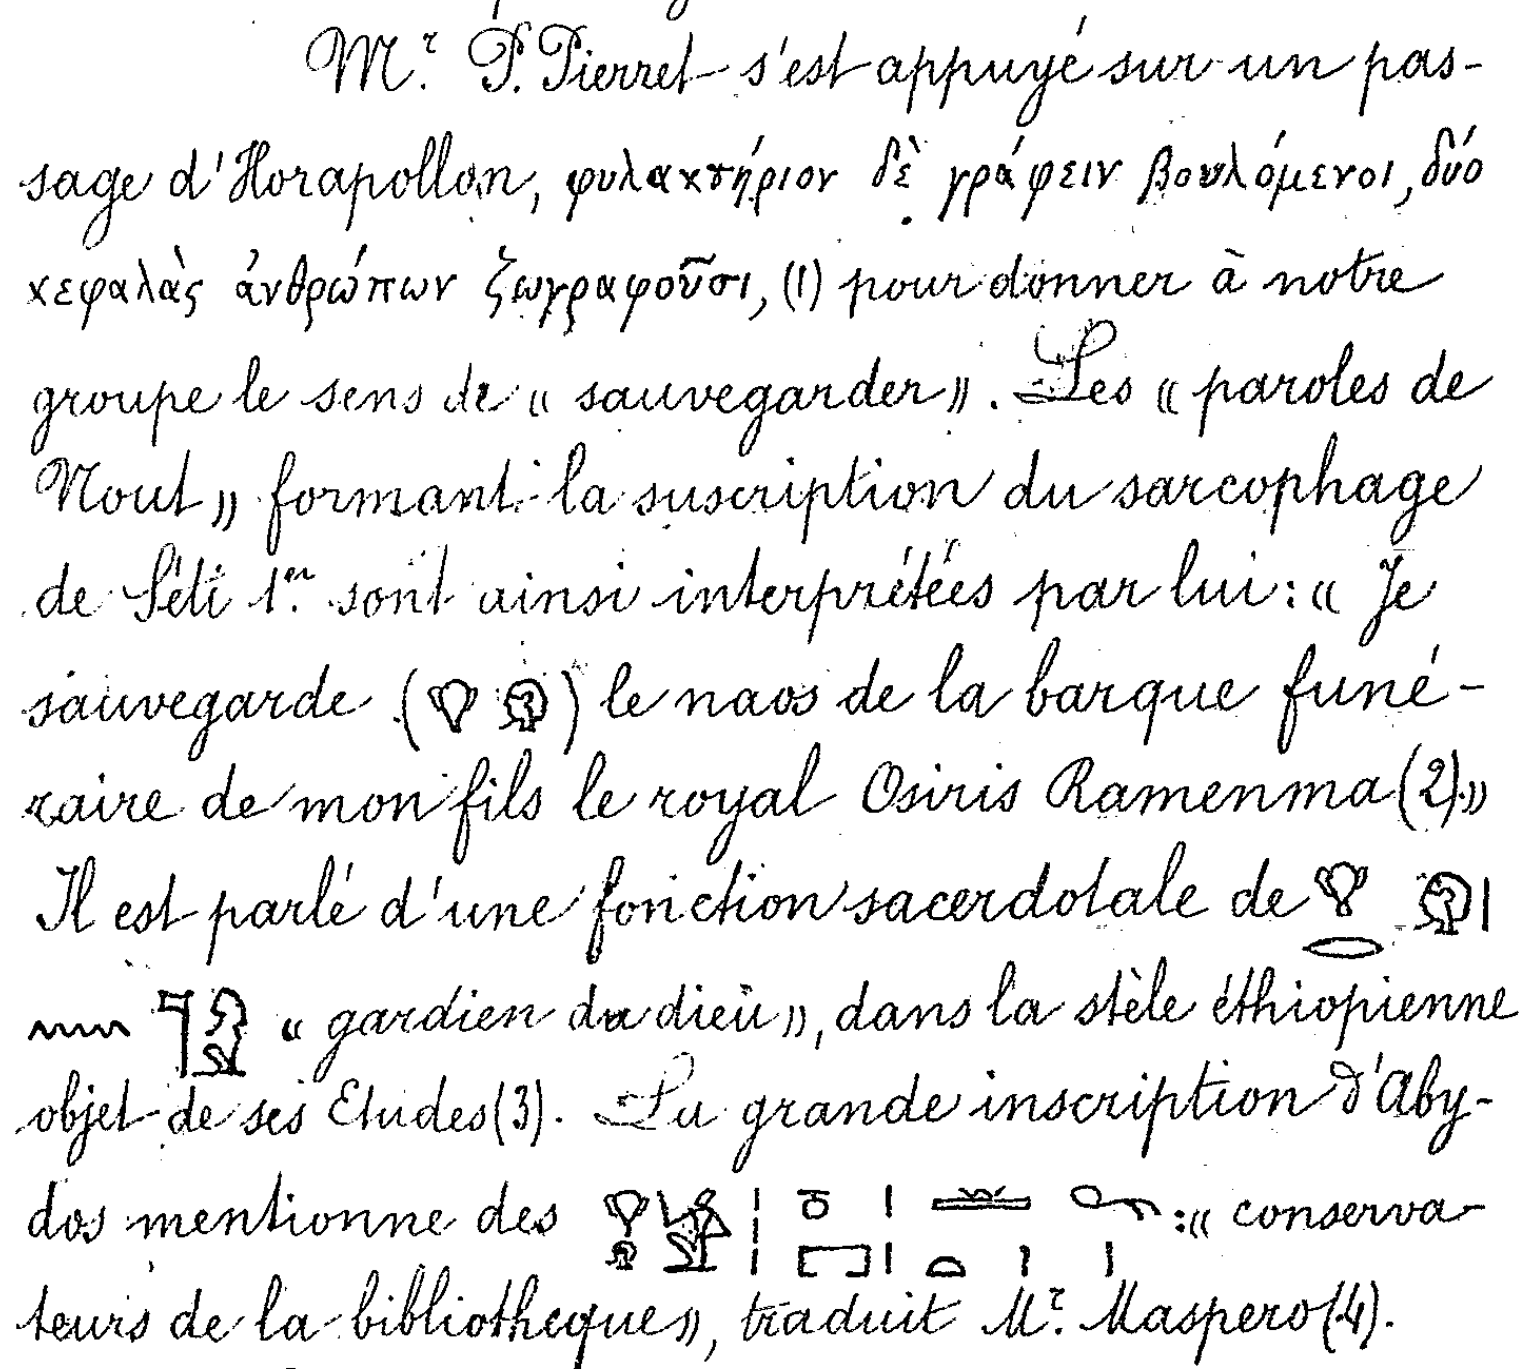 Mr. P. Pierret s'est appuyé sur un pas-
sage d'Horapollon, φυλακτήριον δὲ γράφειν βουλόμενοι, δύο
κεφαλὰς ἀνθρώπων ζωγραφοῦσι, (1) pour donner à notre
groupe le sens de « sauvegarder ». Les « paroles de
Nout » formant la suscription du sarcophage
de Séti 1er. sont ainsi interprétées par lui : « Je
sauvegarde (𓄂 𓁶) le naos de la barque funé-
raire de mon fils le royal Osiris Ramenma (2). »
Il est parlé d'une fonction sacerdotale de
« gardien du dieu », dans la stèle éthiopienne
objet de ses Etudes (3). La grande inscription d'Aby-
dos mentionne des : « conserva-
teurs de la bibliothèque », traduit Mr. Maspero (4).